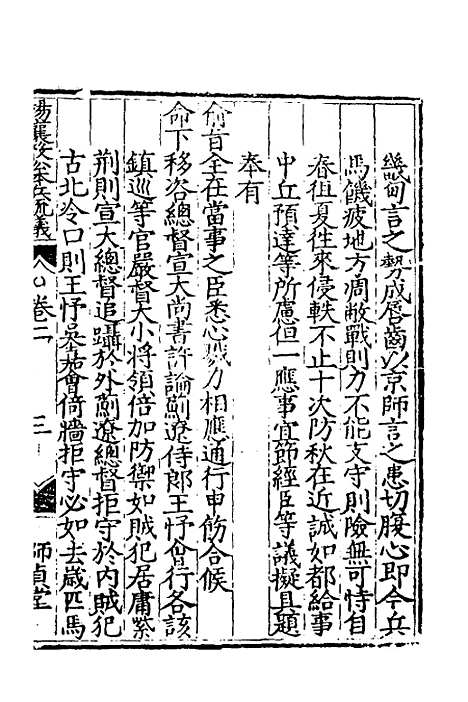 畿甸言之勢成唇齒以京師言之患切腹心即今兵
馬饑疲地方凋敝戰則力不能支守則險無可恃自
春徂夏徃來侵軼不止十次防秋在近誠如都給事
中丘預達等所慮但一應事宜節經臣等議擬具題
奉有
俞旨全在當事之臣悉心戮力相應通行申飭合候
命下移咨總督宣大尚書許論薊遼侍郎王忬會行各該
鎮巡等官嚴督大小將領倍加防禦如賊犯居庸紫
荆則宣大總督追躡於外薊遼總督拒守於内賊犯
古北冷口則王忬吳嘉會倚牆拒守必如去歲匹馬
楊襄毅公本兵疏議
卷二
三
師貞堂